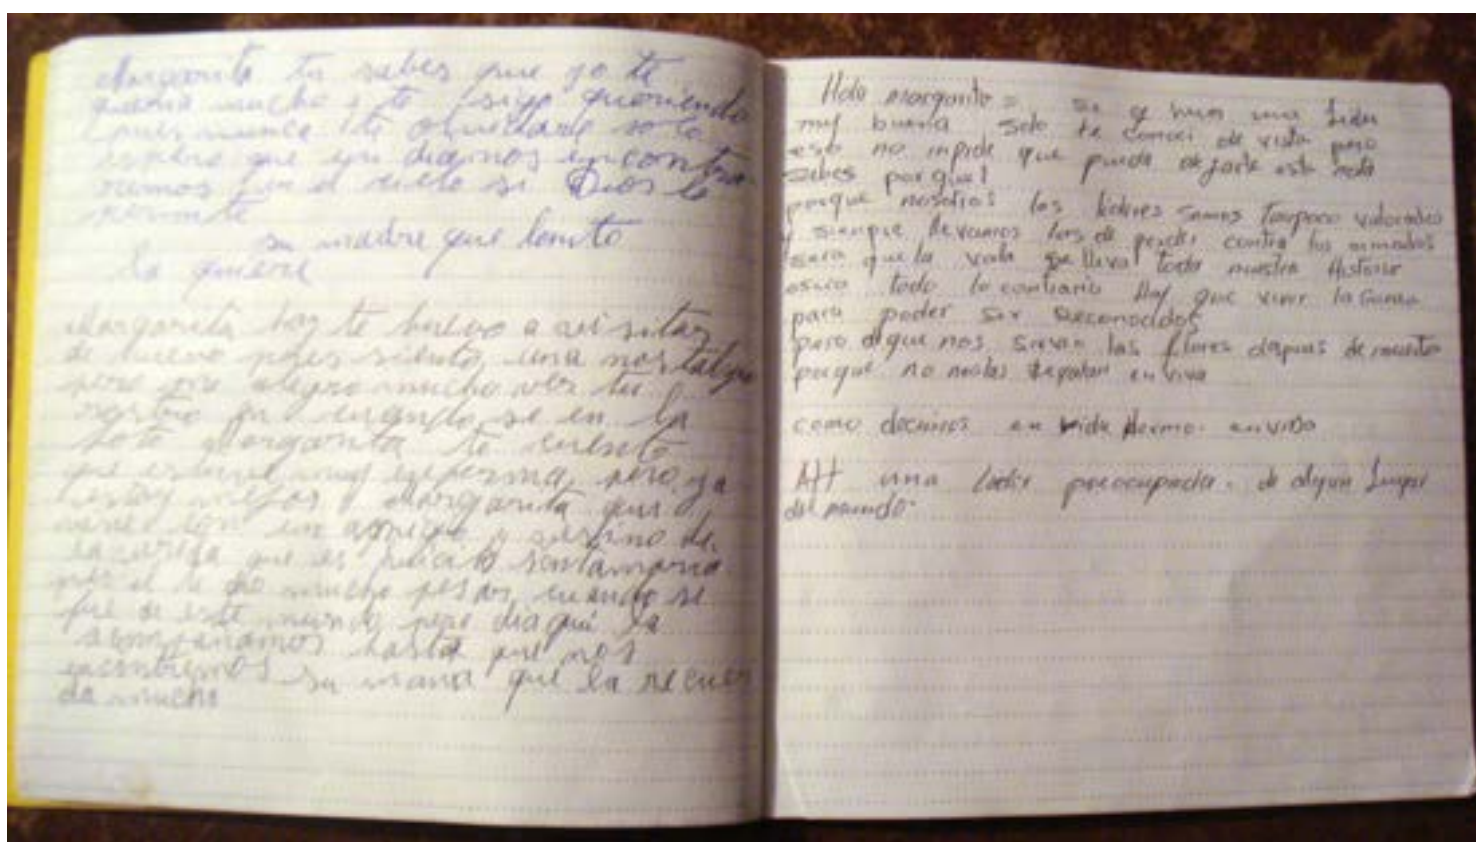 Margarita tu sabes que yo te
queria mucho y te sigo queriendo
pues nunca te olvidare solo
espero que un dia nos encontra
remos en el cielo si Dios lo
permite
su madre que tanto
la quiere
Margarita hoy te buelvo a visitar
de nuevo pues siento una nostalgia
pero me alegro mucho ver tu
rostro en la
foto Margarita te cuento
que estuve muy enferma pero ya
estoy mejor Margarita
vine con un amigo y vesino de
la que es santamaria
pues el le dio mucho pesar cuando se
fue de este mundo pero diaqui la
acompañamos hasta que nos
encontremos su mama que la recuer
da mucho
Hola margarita = se q heras una Lider
muy buena solo te conoci de vista pero
eso no inpide que pueda dejarte esta nota
sabes porque!
porque nosotros los lideres somos tanpoco valorados
y siempre llevamos las de perder contra los armados
sera que la vala toda nuestra Historia
osico todo lo contrario Hay que vivir la Guerra
para poder ser Reconocidos
pero dique nos sirven las flores dispues de muertos
porque no nos las regalan en viva
como decimos en vida hermo. en vida
Att una Lider preocupada. de algun Lugar
del mundo.